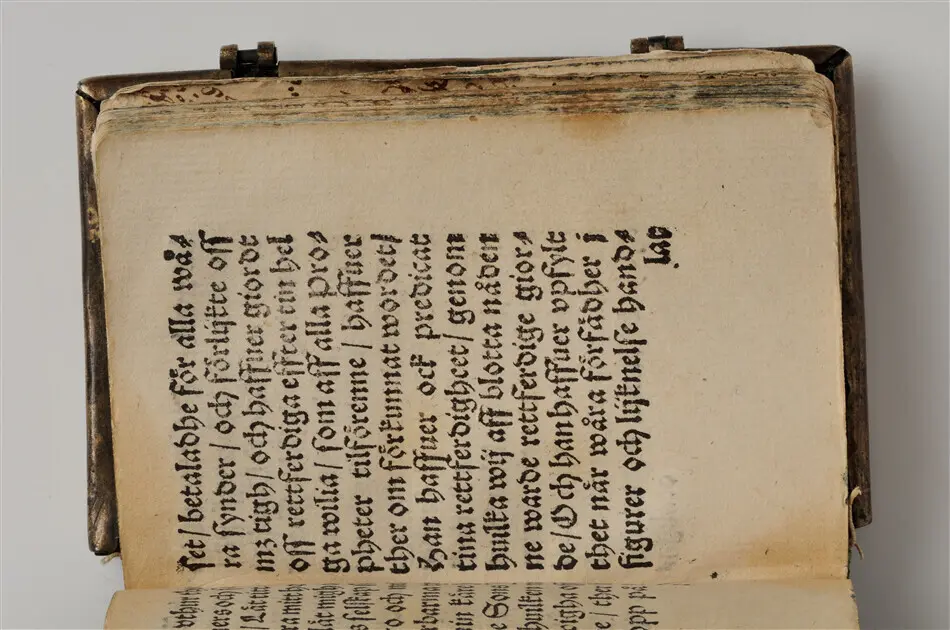 ſet/ betaladhe för alla wå⸗
ra ſynder / och förlijkte oſſ
mz tigh / och haffuer giordt
oſſ rettferdiga effter tin hel
ga wilia / ſom aff alla pro⸗
pheter tilförenne / haffuer
ther om förkunnat wordet/
Han haffuer ock predicat
tina rettferdighcet/ genom
huilka wij aff blotta nåden
ne warde rettferdige gior⸗
de/ Och han haffuer vpfylt
thet når wåra förfädher i
figurer och lijknelſe hand⸗
lat